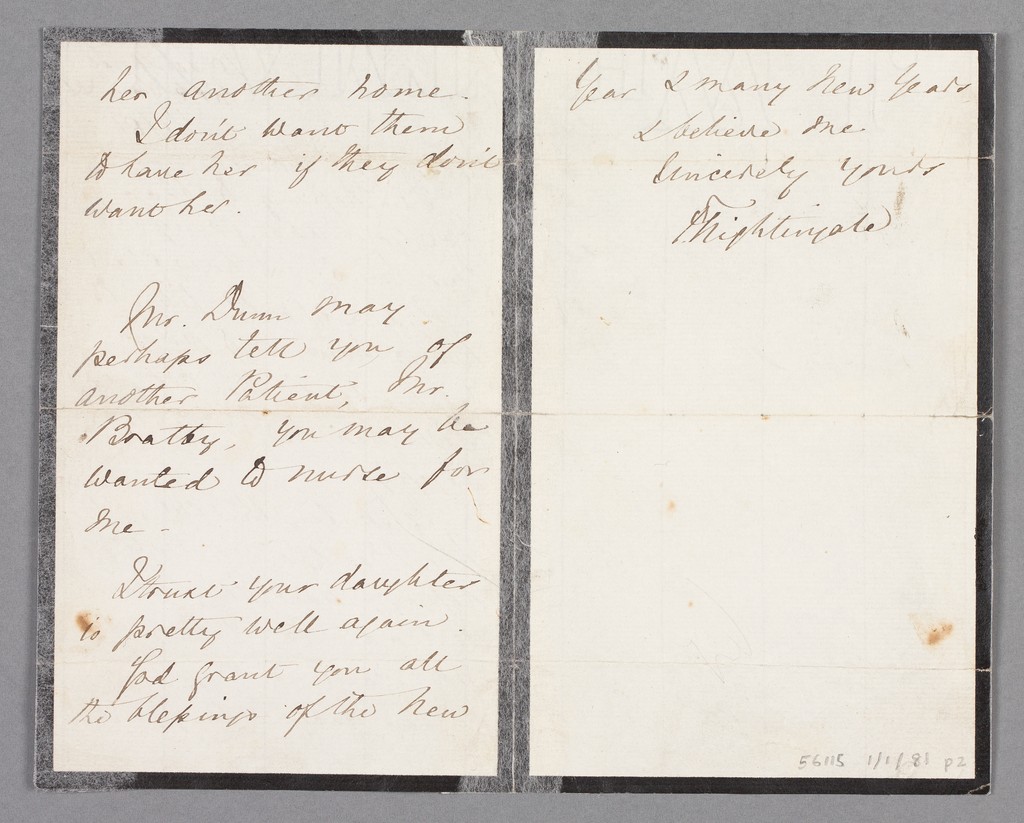 her another home.
I don't want them
to have her if they don't
want her.
Mr. Dunn may
perhaps tell you of
another Patient, Mr.
Bratby, you may be
wanted to nurse for
me -
I trust your daughter
is pretty well again.
God grant you all
the blessings of the New
Year & many New Years
& believe me
sincerely yours
F Nightingale
56115 1/1/81 p2